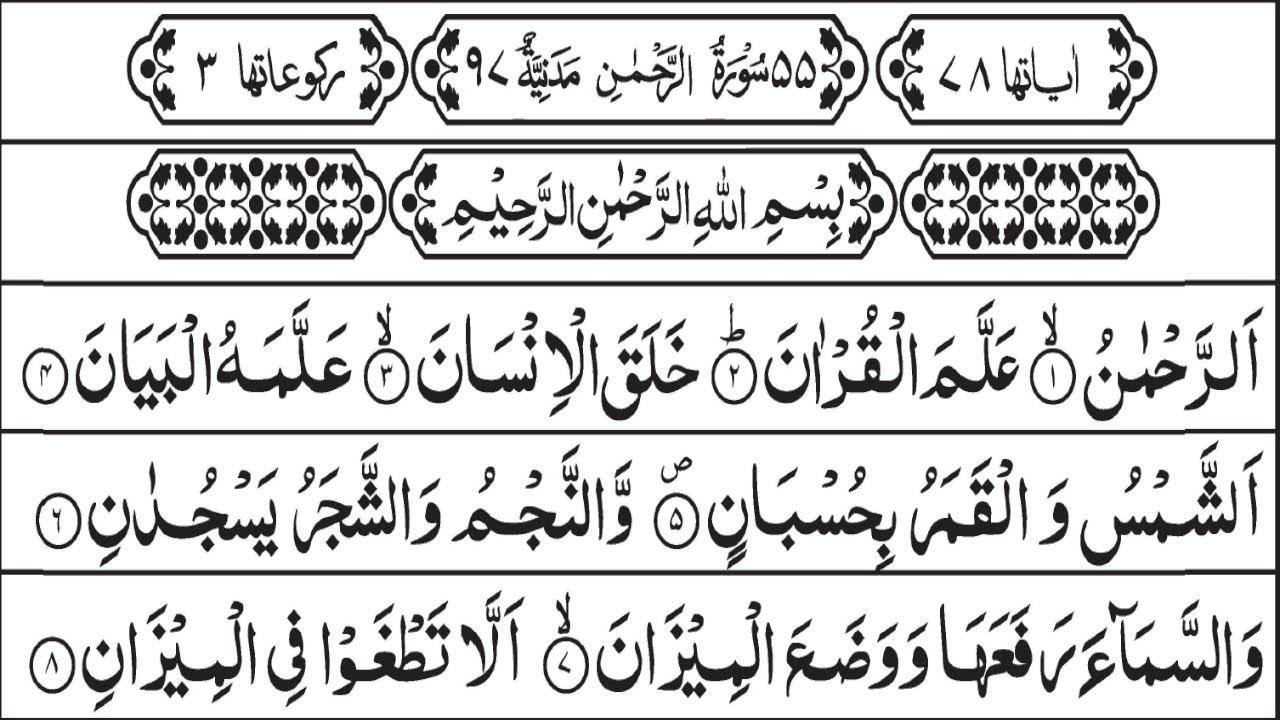 اٰیاتها ۷۸ ۵۵ سُوْرَةُ الرَّحْمٰنِ مَدَنِيَّةٌ ۹۷ رکوعاتها ۳
بِسْمِ اللهِ الرَّحْمٰنِ الرَّحِيْمِ
اَلرَّحْمٰنُ ۙ﴿۱﴾ عَلَّمَ الْقُرْاٰنَ ؕ﴿۲﴾ خَلَقَ الْاِنْسَانَ ۙ﴿۳﴾ عَلَّمَهُ الْبَيَانَ ﴿۴﴾
اَلشَّمْسُ وَ الْقَمَرُ بِحُسْبَانٍ ۪﴿۵﴾ وَّالنَّجْمُ وَالشَّجَرُ يَسْجُدٰنِ ﴿۶﴾
وَالسَّمَآءَ رَفَعَهَا وَوَضَعَ الْمِيْزَانَ ۙ﴿۷﴾ اَلَّا تَطْغَوْا فِي الْمِيْزَانِ ﴿۸﴾